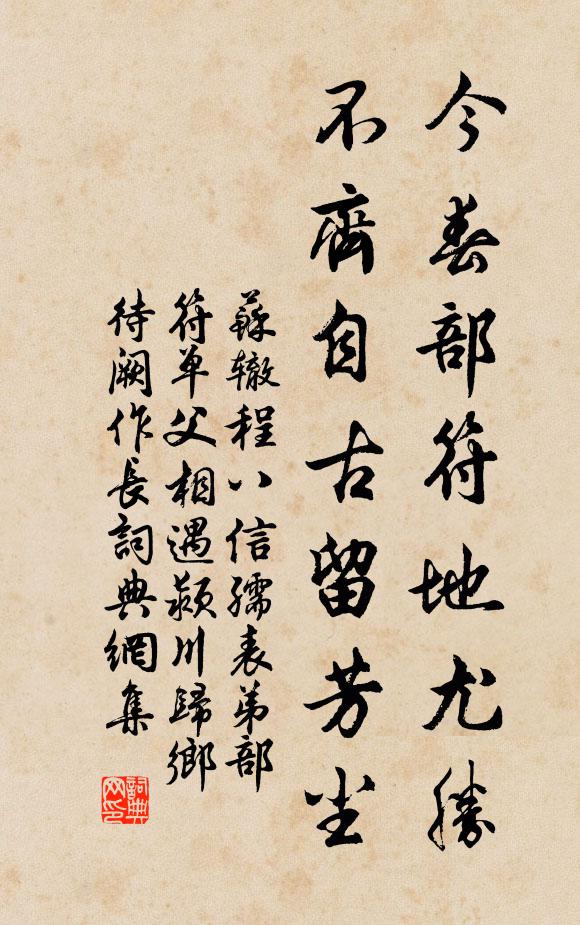 今春部符地尤勝
不齊自古留芳塵
蘇轍程八信孺表弟部
符单父相遇潁川歸鄉
待阙作長詞典網集
詞典
网印